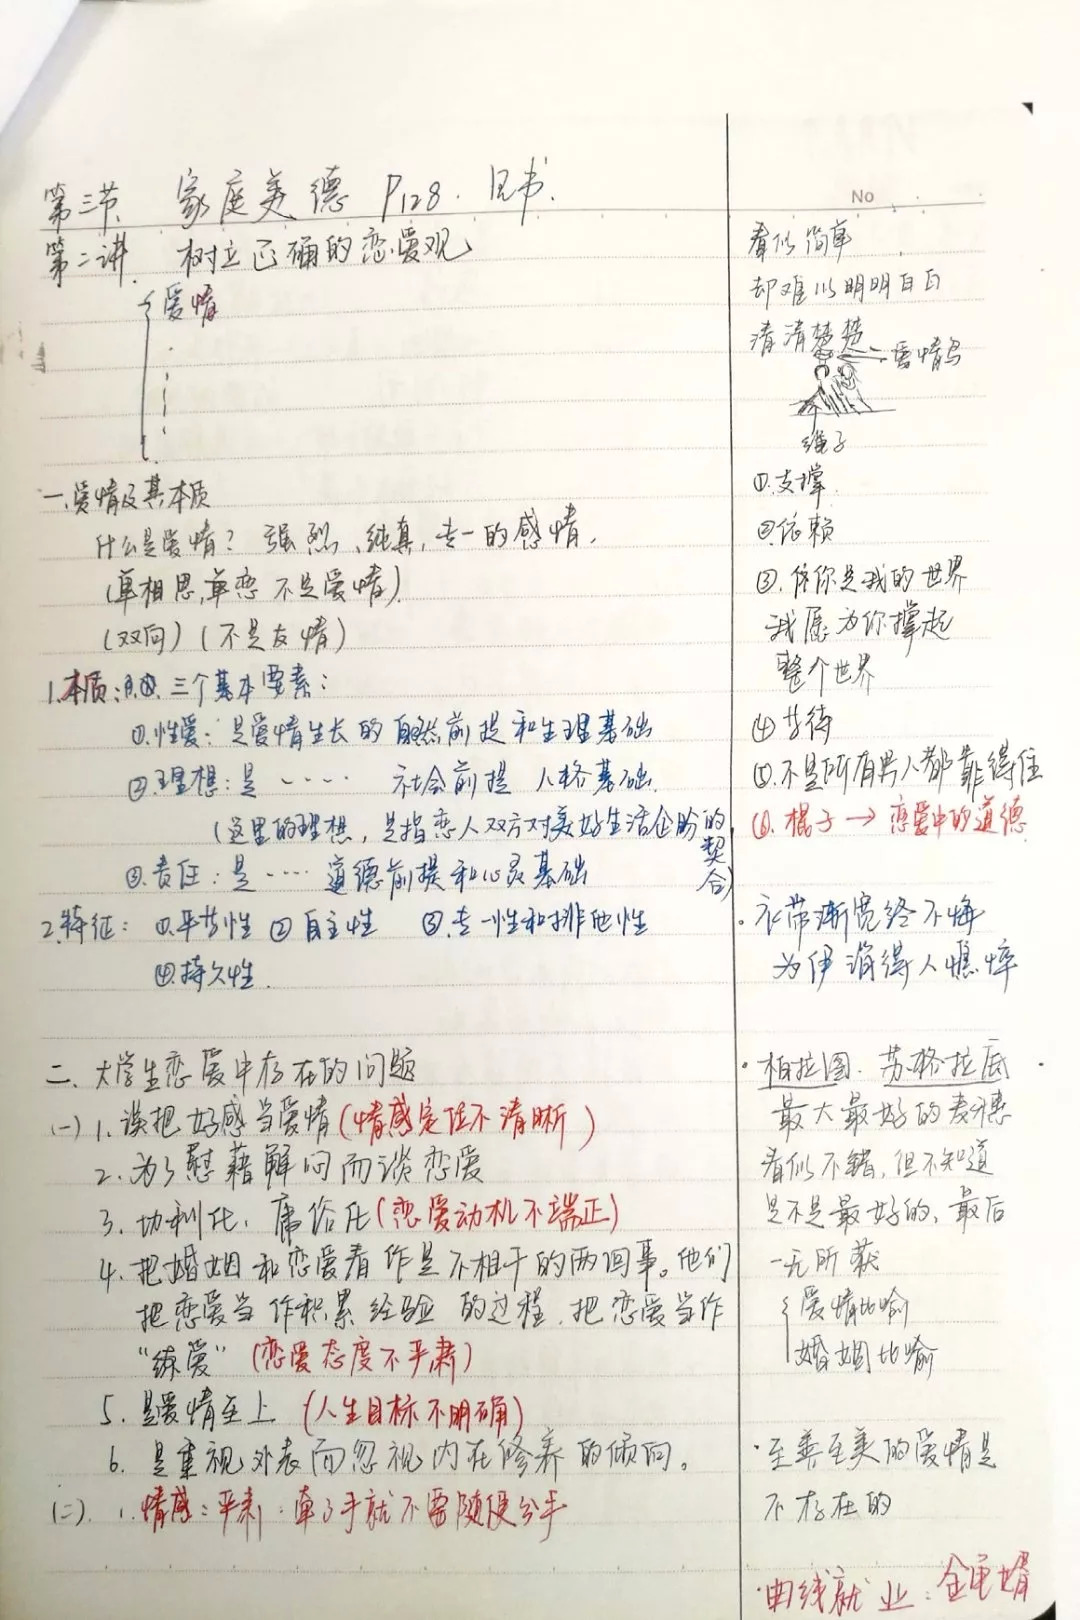 第三节 家庭美德 P128. 见书.
第二讲. 树立正确的恋爱观
爱情
一.爱情及其本质
什么是爱情? 强烈、纯真、专一的感情.
(单相思,单恋 不是爱情)
(双向) (不是友情)
1.本质: 三个基本要素:
①.性爱: 是爱情生长的 自然前提和生理基础
②.理想: 是 ····· 社会前提 人格基础.
(这里的理想, 是指恋人双方对美好生活企盼的契合)
③.责任: 是 ····· 道德前提和心灵基础
2.特征: ①.平等性 ② 自主性 ③.专一性和排他性
④.持久性.
二. 大学生恋爱中存在的问题
(一) 1. 误把好感当爱情 (情感定位不清晰)
2. 为了慰藉解闷而谈恋爱
3. 功利化, 庸俗化 (恋爱动机不端正)
4. 把婚姻和恋爱看作是不相干的两回事。他们
把恋爱当作积累经验的过程, 把恋爱当作
“练爱” (恋爱态度不严肃)
5. 是爱情至上 (人生目标不明确)
6. 是重视外表而忽视内在修养的倾向。
(二). 1. 情感: 严肃: 牵了手就不要随便分手
No
看似简单
却难以明明白白
清清楚楚
爱情鸟
绳子
①.支撑
②.依赖
③.你是我的世界
我愿为你撑起
整个世界
④ 等待
⑤.不是所有男人都靠得住
⑥. 棍子 → 恋爱中的道德
· 衣带渐宽终不悔
为伊消得人憔悴
· 柏拉图. 苏格拉底
最大最好的麦穗
看似不错, 但不知道
是不是最好的, 最后
一无所获
爱情比喻
婚姻比喻
· 至善至美的爱情是
不存在的
· 曲线就业: